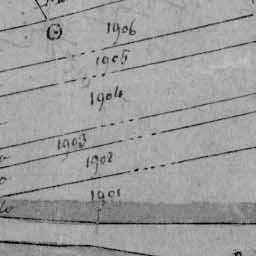 1906
1905
1904
1903
1902
1901